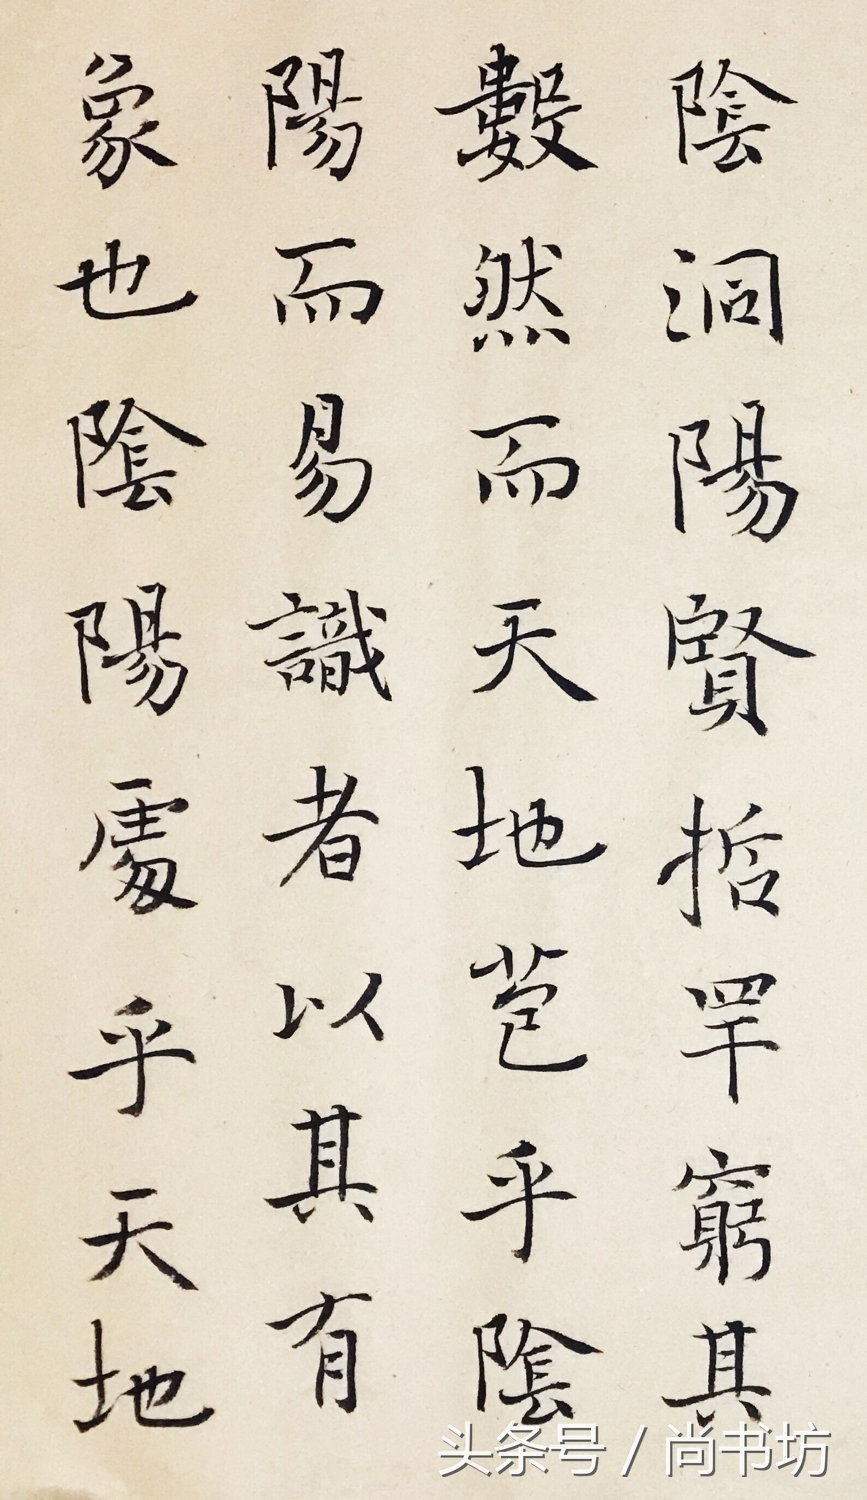 陰洞陽賢哲罕窮其
數然而天地苞乎陰
陽而易識者以其有
象也陰陽處乎天地
头条号 / 尚书坊